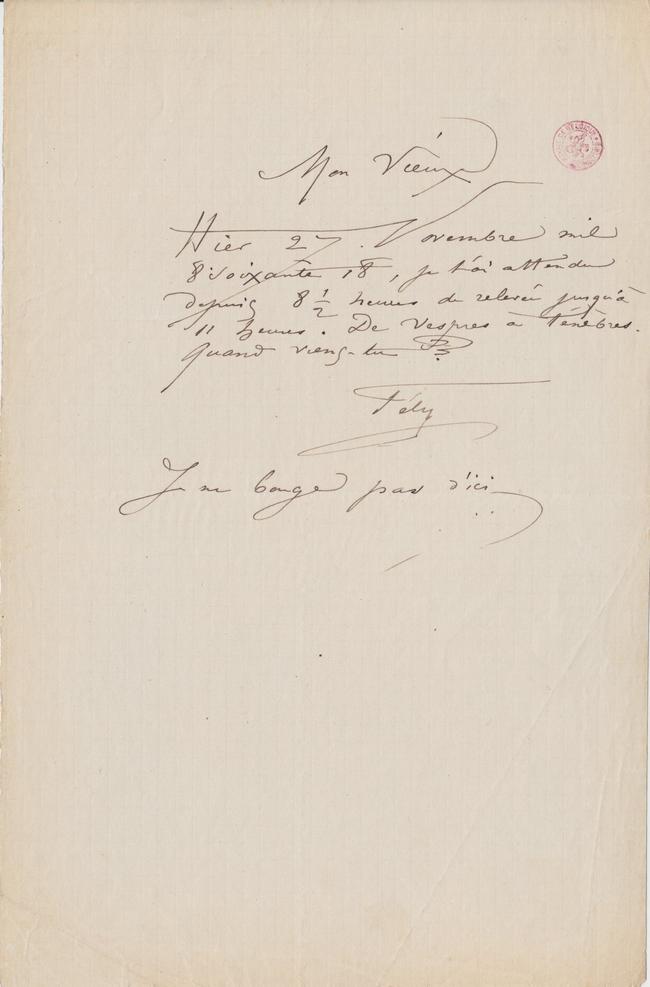 Mon Vieux
Hier 27. Novembre mil
8 soixante 18, je t'ai attendu
depuis 8 1/2 heures de relevée jusqu'à
11 heures. De Vespres à Ténèbres.
Quand viens-tu ??
Fély
Je ne bouge pas d'ici